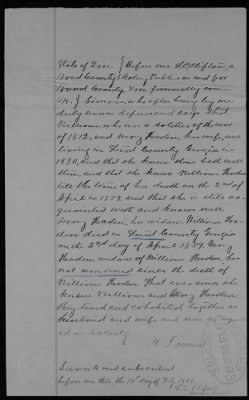 State of Texas } Before me
Wood County } Notary Public in and for
Wood County Texas personally came
M. Simmons, who after being by me
duly sworn deposes and says that
William who was a soldier of the war
of 1812, and Mary Harden his wife, were
living in County Georgia in
1830, and that she knew them both well
then, and that she knew William Harden
till the time of his death on the 2nd of
April in 1839. And that she is also ac-
quainted with and knows well
Mary Harden, as widow. William Har-
den died in County Georgia
on the 2nd day of April 1839. Mary
Harden widow of William Harden has
not married since the death of
William Harden. That ever since she
knew William and Mary Harden
they lived and cohabited together as
husband and wife and was so regard-
ed in society
M Simmons
Sworn to and subscribed
before me this the 10th day of Feby